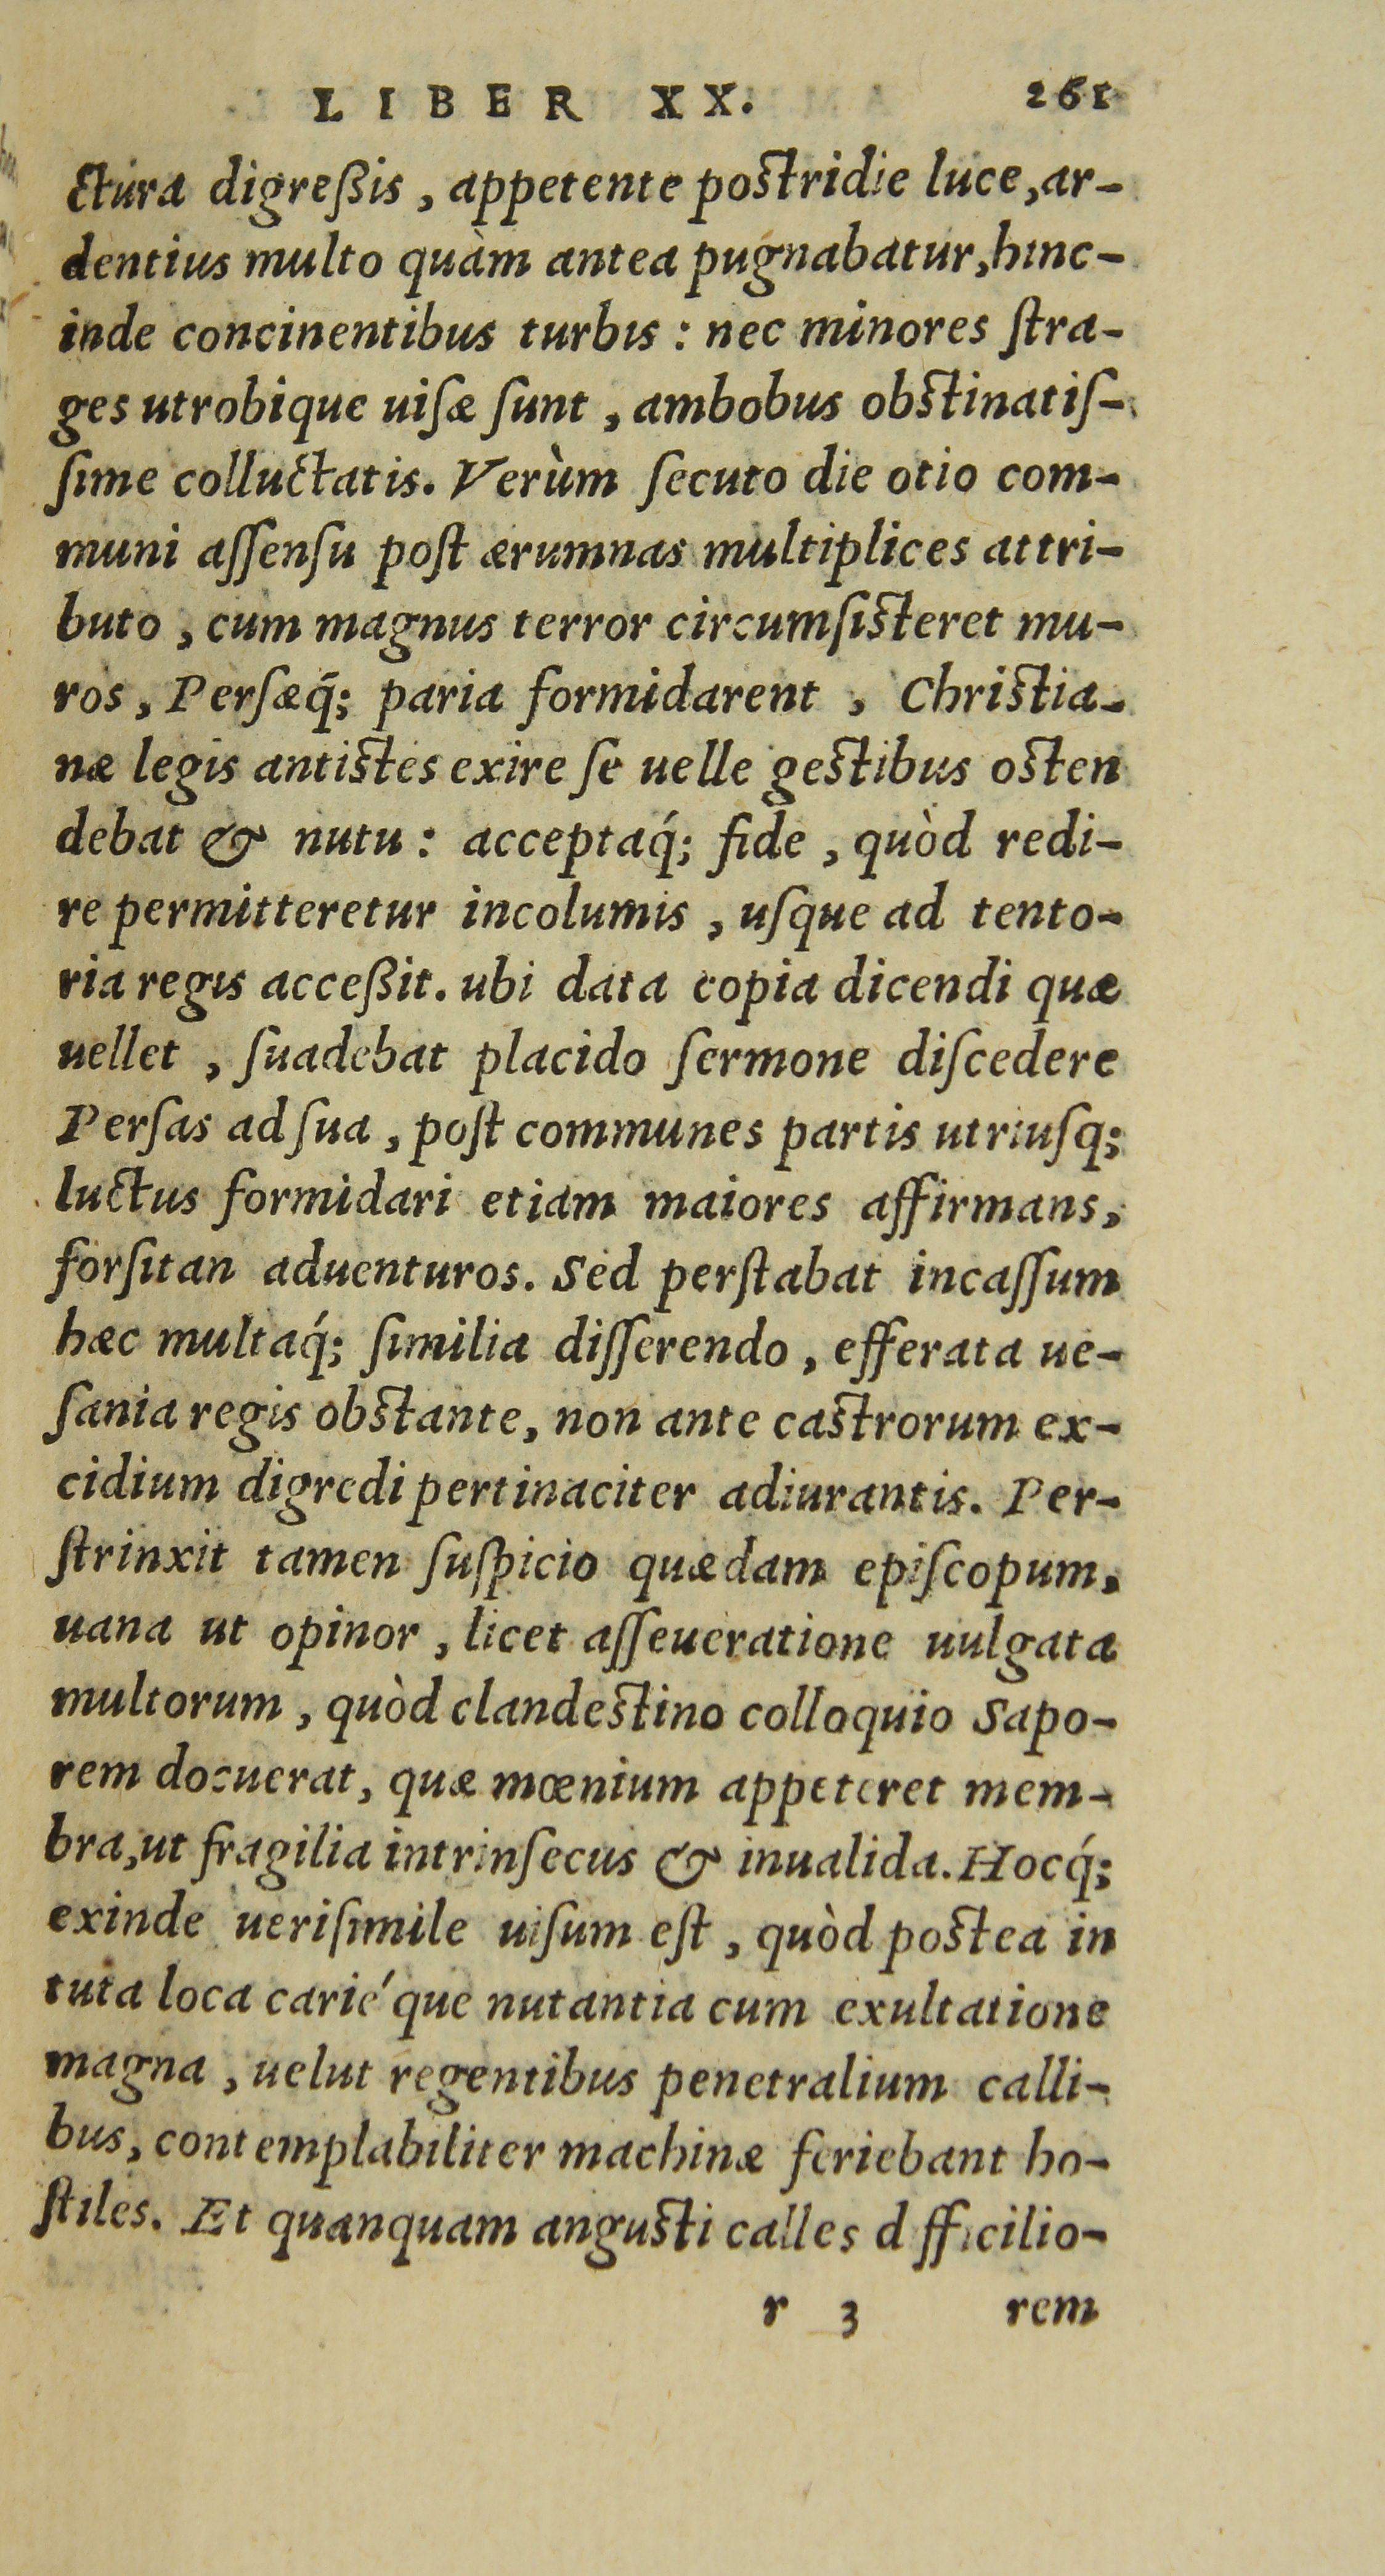 LIBER XX. 261
ctura digreßis, appetente postridie luce, ar-
dentius multo quàm antea pugnabatur, hinc-
inde concinentibus turbis: nec minores ſtra-
ges utrobique uiſæ ſunt, ambobus obstinatiſ-
ſime colluctatis. Verùm ſecuto die otio com-
muni aſſenſu poſt ærumnas multiplices attri-
buto, cum magnus terror circumſisteret mu-
ros, Perſæq́; paria formidarent, Christia-
næ legis antistes exire ſe uelle gestibus osten
debat & nutu: acceptaq́; fide, quòd redi-
re permitteretur incolumis, uſque ad tento-
ria regis acceßit. ubi data copia dicendi quæ
uellet, ſuadebat placido ſermone diſcedere
Perſas ad ſua, poſt communes partis utriuſq;
luctus formidari etiam maiores affirmans,
forſitan aduenturos. Sed perſtabat incaſſum
hæc multaq́; ſimilia diſſerendo, efferata ue-
ſania regis obstante, non ante castrorum ex-
cidium digredi pertinaciter adiurantis. Per-
ſtrinxit tamen ſuſpicio quædam epiſcopum,
uana ut opinor, licet aſſeueratione uulgata
multorum, quòd clandestino colloquio Sapo-
rem docuerat, quæ mœnium appeteret mem-
bra, ut fragilia intrinſecus & inualida. Hocq́;
exinde ueriſimile uiſum eſt, quòd postea in
tuta loca carié que nutantia cum exultatione
magna, uelut regentibus penetralium calli-
bus, contemplabiliter machinæ feriebant ho-
ſtiles. Et quanquam angusti calles d fficilio-
r 3 rem